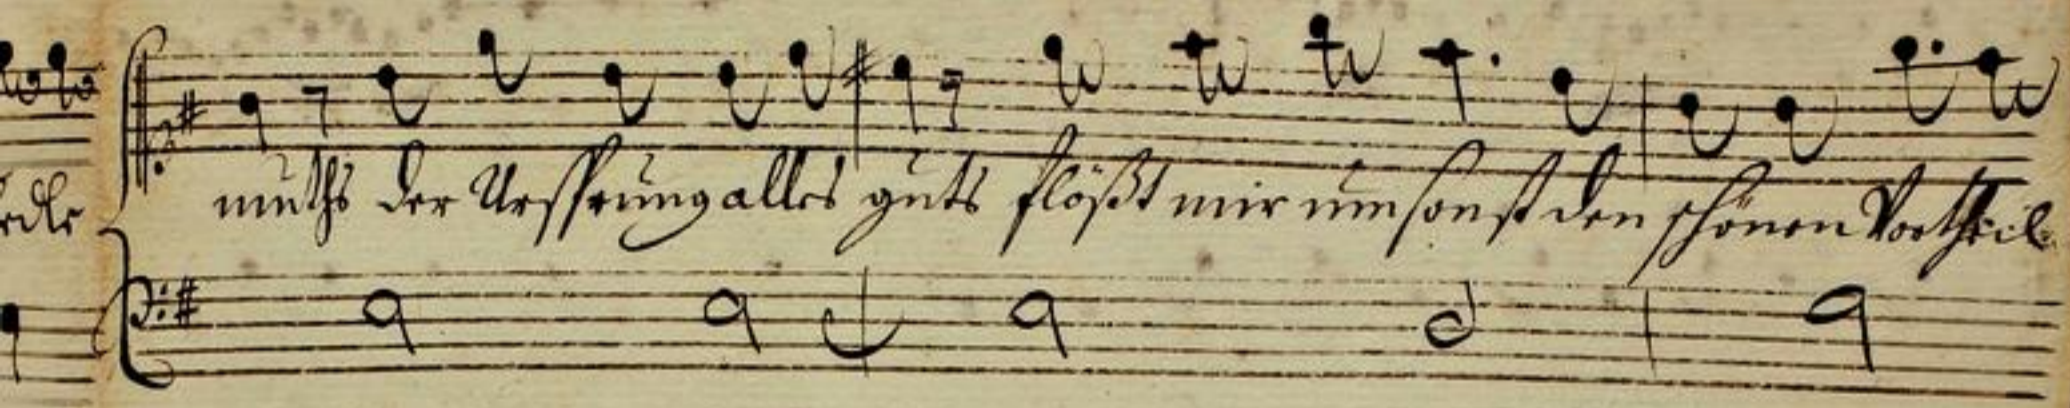 edle muths der Ursprung alles guts flößt mir umsonst den schönen Vortheil